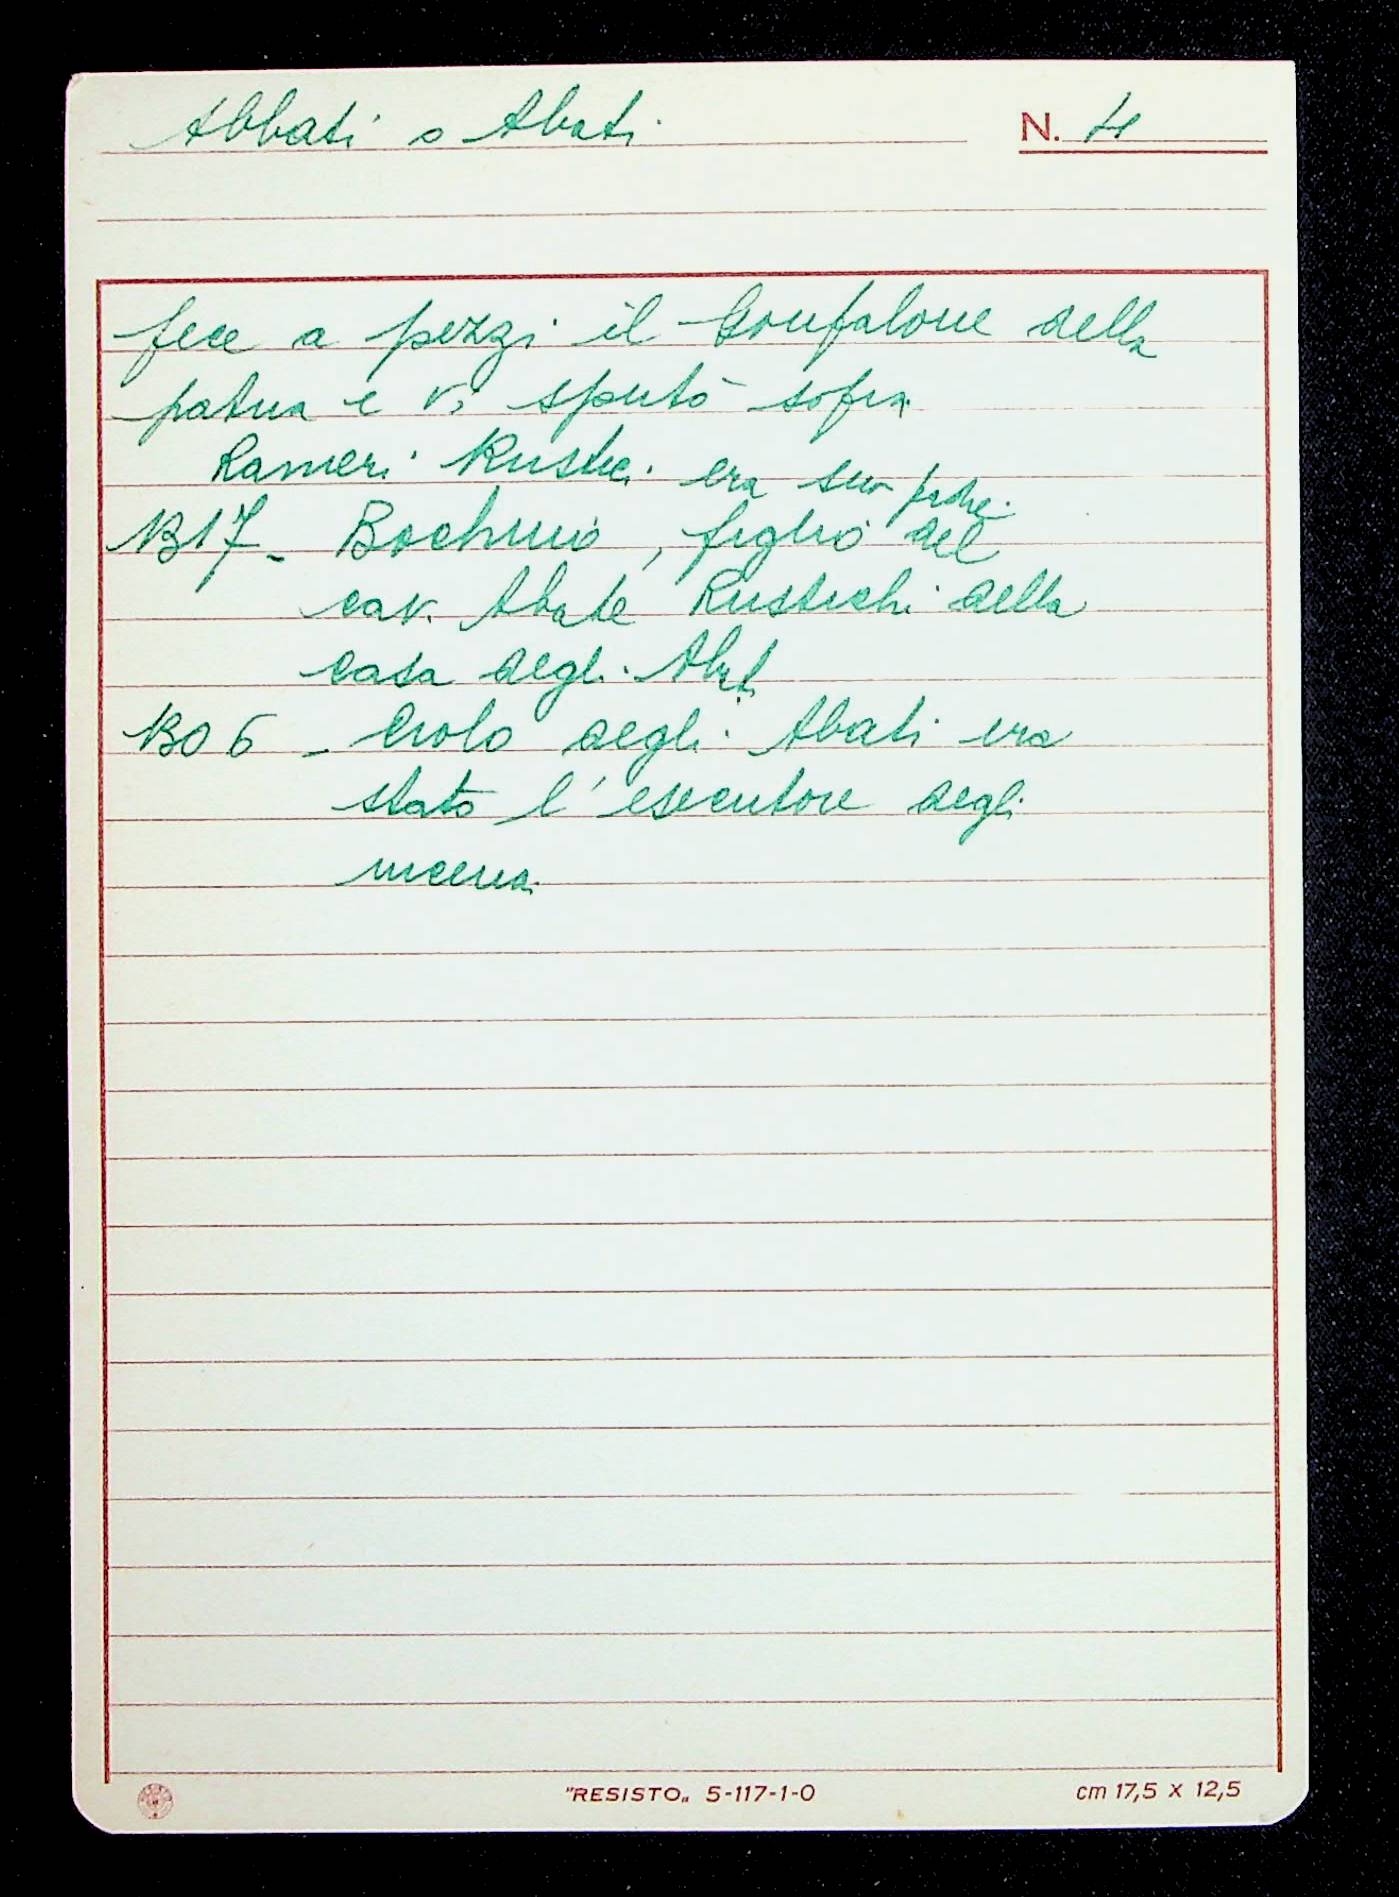 Abbati o Abati N. 4
fece a pezzi il Gonfalone della
patria e vi sputò sopra
Ranieri Rustici era suo padre.
1317 - Bochino, figlio del
cav. Abate Rustichi della
casa degli Abati
1306 - Ciolo degli Abati era
stato l'esecutore degli
incendi
"RESISTO„ 5-117-1-0 cm 17,5 x 12,5